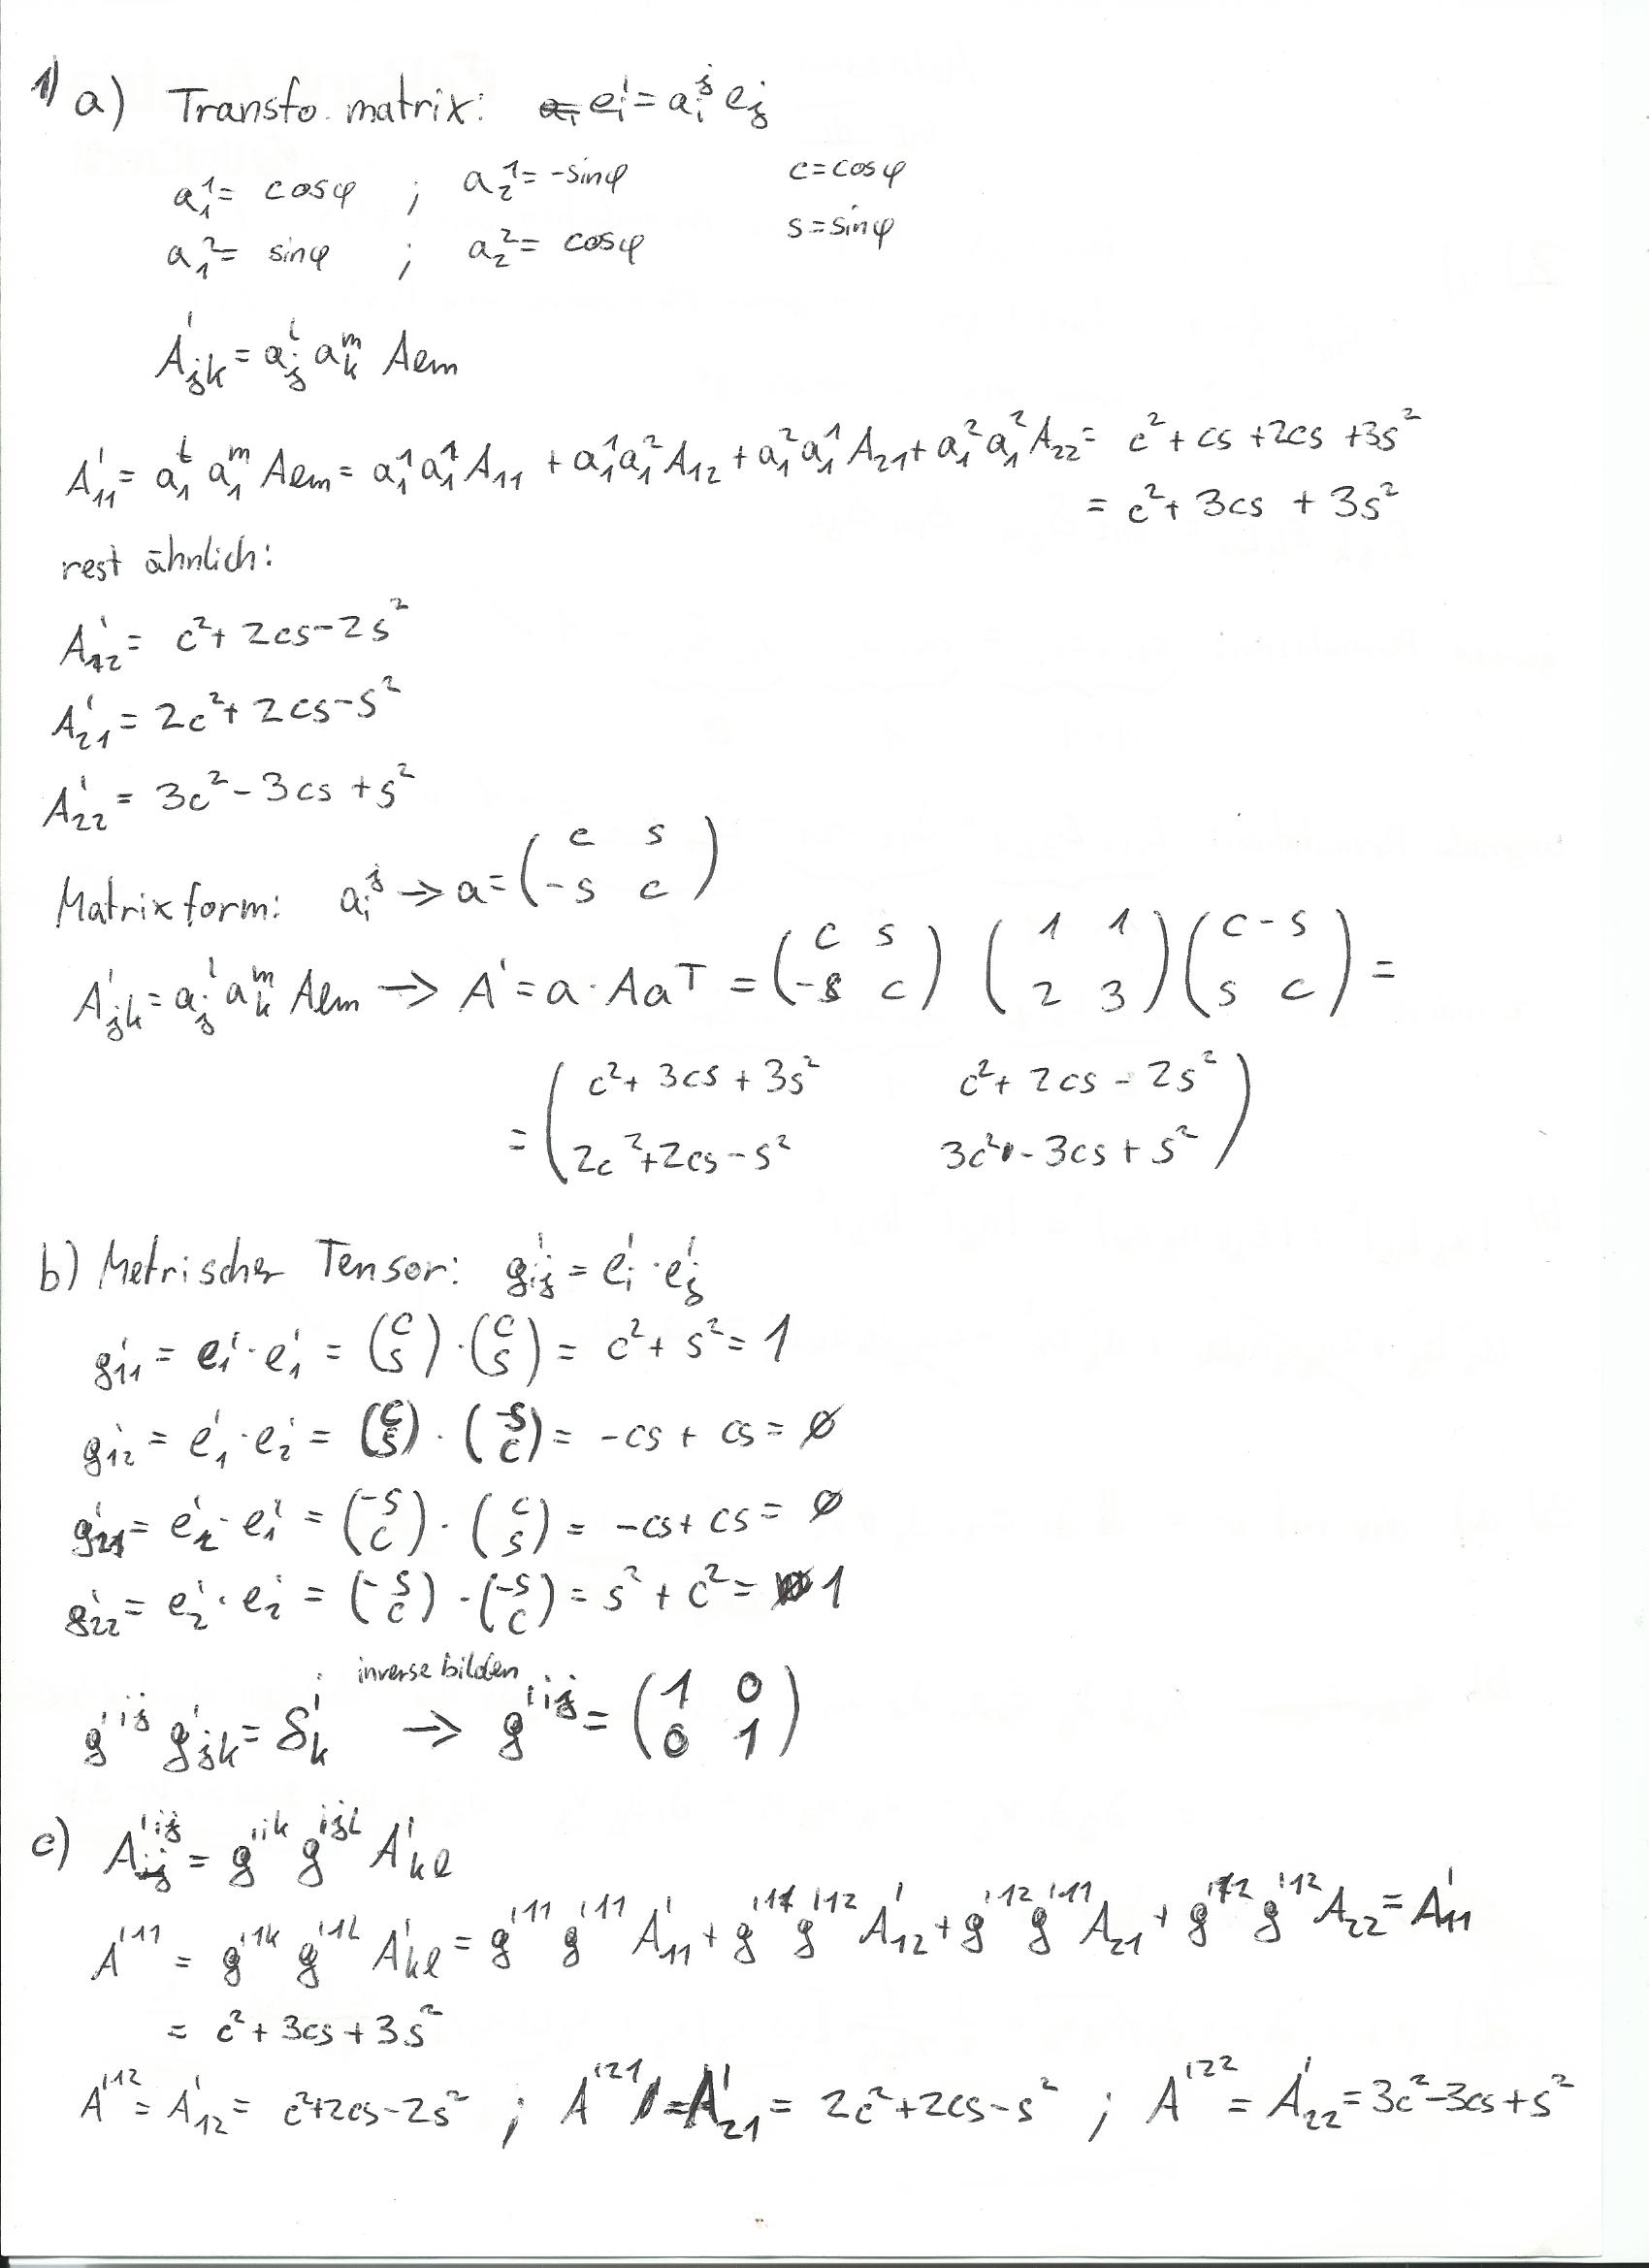 1) a) Transfo. matrix: e'_i = a_i^j e_j
a_1^1 = cosφ ; a_2^1 = -sinφ c = cosφ
a_1^2 = sinφ ; a_2^2 = cosφ s = sinφ
A'_jk = a_j^l a_k^m A_lm
A'_11 = a_1^l a_1^m A_lm = a_1^1 a_1^1 A_11 + a_1^1 a_1^2 A_12 + a_1^2 a_1^1 A_21 + a_1^2 a_1^2 A_22 = c² + cs + 2cs + 3s²
= c² + 3cs + 3s²
rest ähnlich:
A'_12 = c² + 2cs - 2s²
A'_21 = 2c² + 2cs - s²
A'_22 = 3c² - 3cs + s²
Matrixform: a_i^j → a = ( c s ; -s c )
A'_jk = a_j^l a_k^m A_lm → A' = a · A a^T = ( c s ; -s c ) ( 1 1 ; 2 3 ) ( c -s ; s c ) =
= ( c² + 3cs + 3s² c² + 2cs - 2s² ; 2c² + 2cs - s² 3c² - 3cs + s² )
b) Metrischer Tensor: g'_ij = e'_i · e'_j
g'_11 = e'_1 · e'_1 = ( c ; s ) · ( c ; s ) = c² + s² = 1
g'_12 = e'_1 · e'_2 = ( c ; s ) · ( -s ; c ) = -cs + cs = 0
g'_21 = e'_2 · e'_1 = ( -s ; c ) · ( c ; s ) = -cs + cs = 0
g'_22 = e'_2 · e'_2 = ( -s ; c ) · ( -s ; c ) = s² + c² = 1
inverse bilden
g'^ij g'_jk = δ^i_k → g'^ij = ( 1 0 ; 0 1 )
c) A'^ij = g'^ik g'^jl A'_kl
A'^11 = g'^1k g'^1l A'_kl = g'^11 g'^11 A'_11 + g'^11 g'^12 A'_12 + g'^12 g'^11 A_21 + g'^12 g'^12 A_22 = A'_11
= c² + 3cs + 3s²
A'^12 = A'_12 = c² + 2cs - 2s² ; A'^21 = A'_21 = 2c² + 2cs - s² ; A'^22 = A'_22 = 3c² - 3cs + s²